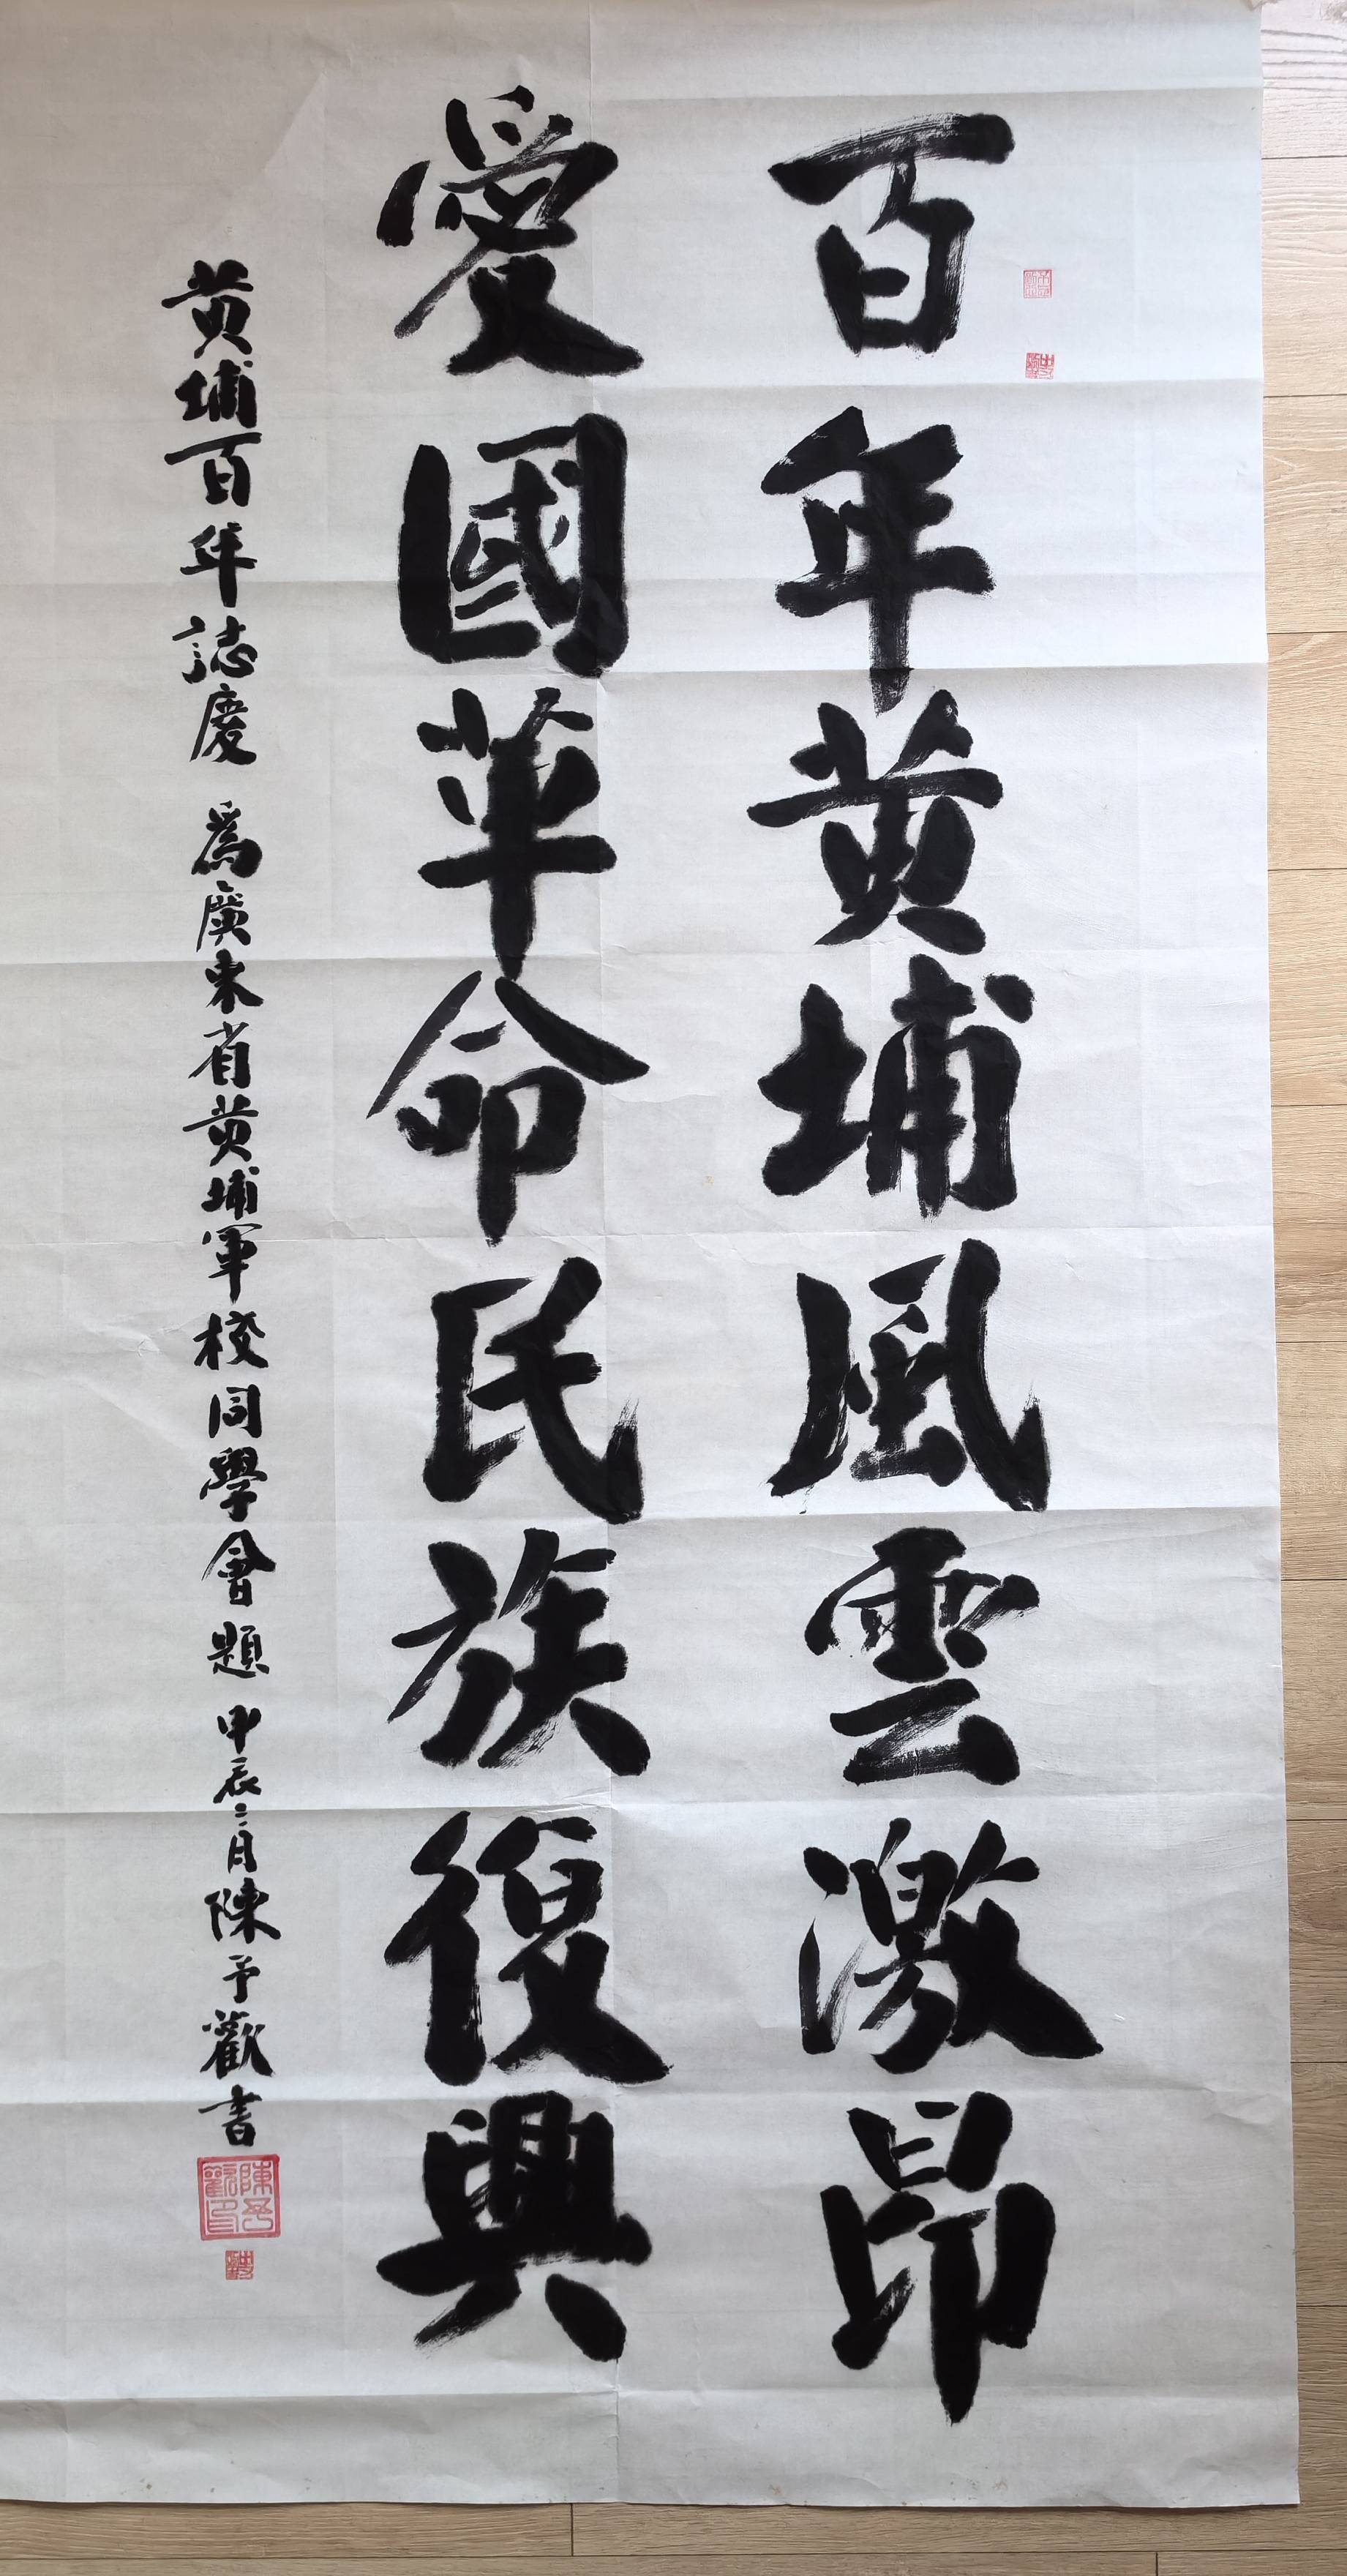 百年黃埔風雲激昂
愛國革命民族復興
黃埔百年誌慶 為廣東省黃埔軍校同學會題 甲辰二月陳予歡書
陳予歡印